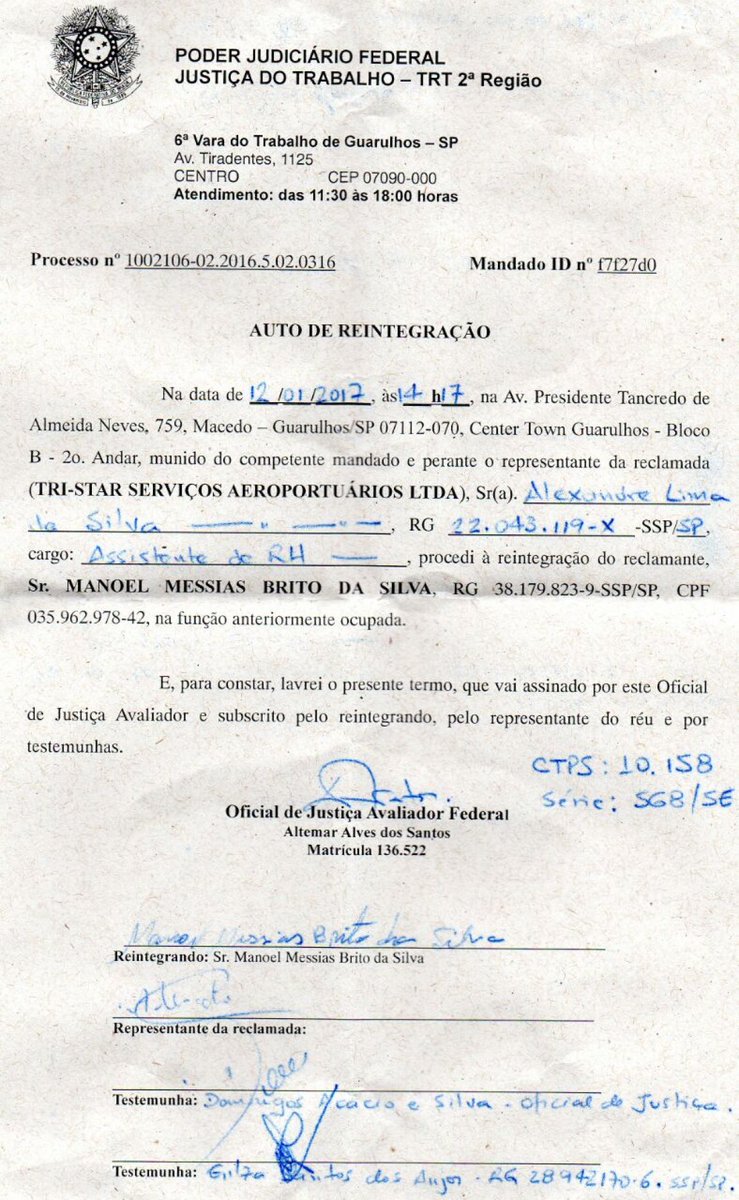 PODER JUDICIÁRIO FEDERAL
JUSTIÇA DO TRABALHO – TRT 2ª Região
6ª Vara do Trabalho de Guarulhos – SP
Av. Tiradentes, 1125
CENTRO CEP 07090-000
Atendimento: das 11:30 às 18:00 horas
Processo nº 1002106-02.2016.5.02.0316 Mandado ID nº f7f27d0
AUTO DE REINTEGRAÇÃO
Na data de 12/01/2017, às 14 h 17, na Av. Presidente Tancredo de
Almeida Neves, 759, Macedo – Guarulhos/SP 07112-070, Center Town Guarulhos - Bloco
B - 2o. Andar, munido do competente mandado e perante o representante da reclamada
(TRI-STAR SERVIÇOS AEROPORTUÁRIOS LTDA), Sr(a). Alexandre Lima
da Silva, RG 22.043.119-X -SSP/SP,
cargo: Assistente de RH, procedi à reintegração do reclamante,
Sr. MANOEL MESSIAS BRITO DA SILVA, RG 38.179.823-9-SSP/SP, CPF
035.962.978-42, na função anteriormente ocupada.
E, para constar, lavrei o presente termo, que vai assinado por este Oficial
de Justiça Avaliador e subscrito pelo reintegrando, pelo representante do réu e por
testemunhas.
CTPS: 10.158
Série: 568/SE
Oficial de Justiça Avaliador Federal
Altemar Alves dos Santos
Matrícula 136.522
Manoel Messias Brito da Silva
Reintegrando: Sr. Manoel Messias Brito da Silva
Representante da reclamada:
Testemunha: Domingos Acácio e Silva - Oficial de Justiça.
Testemunha: Gilza Santos dos Anjos - RG 28942170-6. SSP/SP.